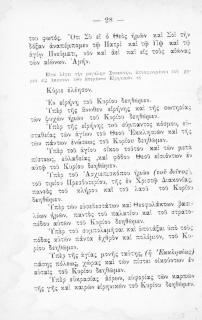 — 28 —
του φωτός. Ὅτι Σὺ εἶ ὁ Θεὸς ἡμῶν καὶ Σοὶ τὴν
δόξαν ἀναπέμπομεν τῷ Πατρὶ καὶ τῷ Υἱῷ καὶ τῷ
ἁγίῳ Πνεύματι, νῦν καὶ ἀεὶ καὶ εἰς τοὺς αἰῶνας
τῶν αἰώνων. Ἀμήν.
Κύριε ἐλέησον.
Ἐν εἰρήνῃ τοῦ Κυρίου δεηθῶμεν.
Ὑπὲρ τῆς ἄνωθεν εἰρήνης καὶ τῆς σωτηρίας
τῶν ψυχῶν ἡμῶν τοῦ Κυρίου δεηθῶμεν.
Ὑπὲρ τῆς εἰρήνης τοῦ σύμπαντος κόσμου, εὐ-
σταθείας τῶν ἁγίων τοῦ Θεοῦ Ἐκκλησιῶν καὶ τῆς
τῶν πάντων ἑνώσεως τοῦ Κυρίου δεηθῶμεν.
Ὑπὲρ τοῦ ἁγίου οἴκου τούτου καὶ τῶν μετὰ
πίστεως, εὐλαβείας καὶ φόβου Θεοῦ εἰσιόντων ἐν
αὐτῷ τοῦ Κυρίου δεηθῶμεν.
Ὑπὲρ τοῦ Ἀρχιεπισκόπου ἡμῶν (τοῦ δεῖνος),
τοῦ τιμίου Πρεσβυτερίου, τῆς ἐν Χριστῷ Διακονίας,
παντὸς τοῦ κλήρου καὶ τοῦ λαοῦ τοῦ Κυρίου
δεηθῶμεν.
Ὑπὲρ τῶν εὐσεβεστάτων καὶ Θεοφυλάκτων βασι-
λέων ἡμῶν, παντὸς τοῦ παλατίου καὶ τοῦ στρατο-
πέδου αὐτῶν τοῦ Κυρίου δεηθῶμεν.
Ὑπὲρ τοῦ συμπολεμῆσαι καὶ ὑποτάξαι ὑπὸ τοὺς
πόδας αὐτῶν πάντα ἐχθρὸν καὶ πολέμιον, τοῦ Κυ-
ρίου δεηθῶμεν.
Ὑπὲρ τῆς ἁγίας μονῆς ταύτης, (ἢ Ἐκκλησίας)
πάσης πόλεως, χώρας καὶ τῶν πίστει οἰκούντων ἐν
αὐταῖς τοῦ Κυρίου δεηθῶμεν.
Ὑπὲρ εὐκρασίας ἀέρων, εὐφορίας τῶν καρπῶν
τῆς γῆς καὶ καιρῶν εἰρηνικῶν τοῦ Κυρίου δεηθῶμεν.